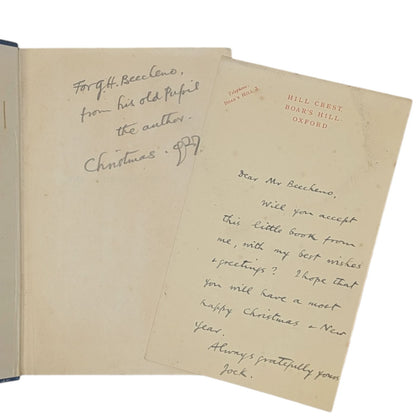 For G.H. Beecheno,
from his old Pupil
the author.
Christmas.
Telephone:
Boar's Hill
HILL CREST,
BOAR'S HILL,
OXFORD
Dear Mr Beecheno,
Will you accept
this little book from
me, with my best wishes
& greetings? I hope that
you will have a most
happy Christmas & New
Year.
Always gratefully yours
Jock.